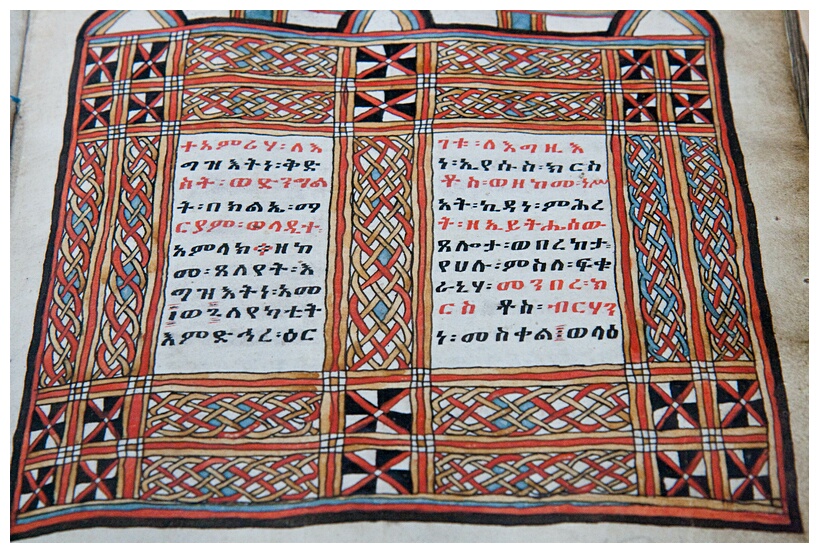 ተአምሪሃ፡ለእ
ግዝእትነ፡ቅድ
ስት፡ወድንግል
ት፡በክልኤ፡ማ
ርያም፡ወላዲተ
አምላክ፡
መ፡ጸለየት፡እ
ግዝእትነ፡አመ
ለየካቲት
እምድኅረ፡ዕር
ገቱ፡ለእግዚእ
ነ፡ኢየሱስ፡ክርስ
ቶስ፡ወዘከመ፡
አት፡ኪዳነ፡ምሕረ
ት፡ዘኢይትሔሰው
ጸሎታ፡ወበረከታ
የሀሉ፡ምስለ፡ፍቁ
ራኒሃ፡መንበረ፡ክ
ርስ ቶስ፡ብርሃን
ነ፡መስቀል፡